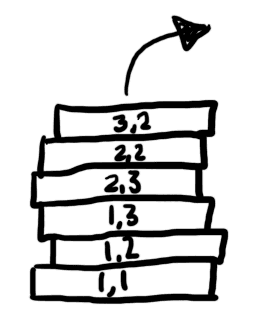 3,2
2,2
2,3
1,3
1,2
1,1